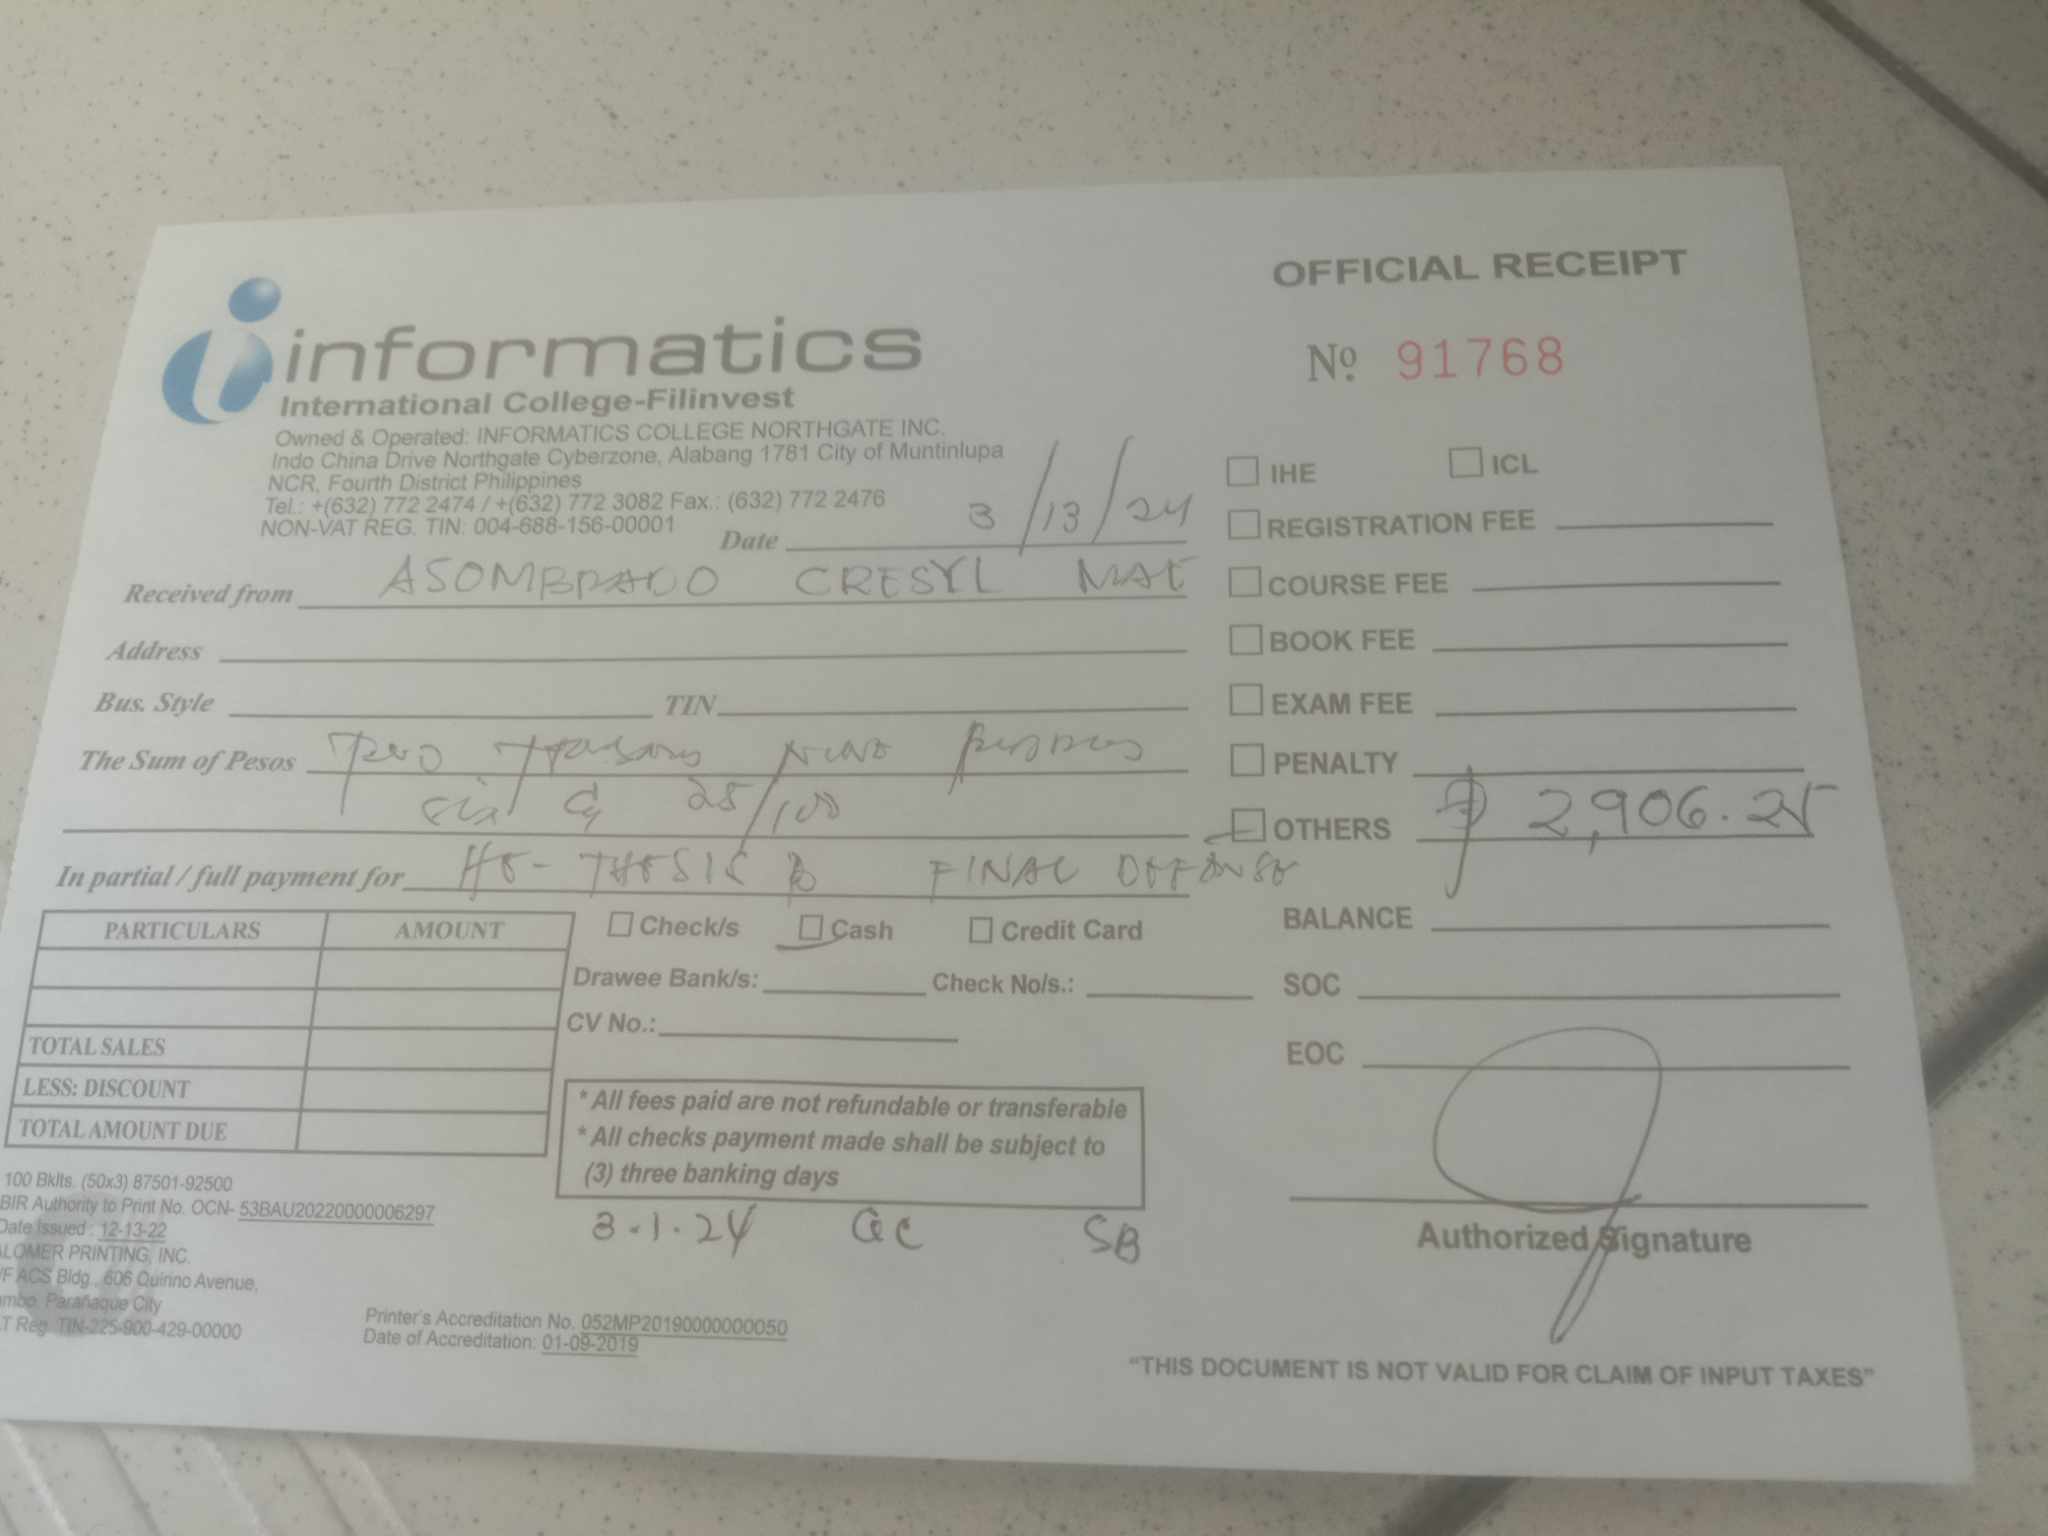 OFFICIAL RECEIPT
informatics
International College-Filinvest
Nº 91768
Owned & Operated: INFORMATICS COLLEGE NORTHGATE INC.
Indo China Drive Northgate Cyberzone, Alabang 1781 City of Muntinlupa
NCR, Fourth District Philippines
Tel.: +(632) 772 2474 / +(632) 772 3082 Fax.: (632) 772 2476
NON-VAT REG. TIN: 004-688-156-00001
Date 3/13/24
Received from ASOMBRADO CRESYL MAE
Address
Bus. Style TIN
The Sum of Pesos Two Thousand Nine Hundred
six & 25/100
In partial / full payment for THESIS B FINAL DEFENSE
IHE ICL
REGISTRATION FEE
COURSE FEE
BOOK FEE
EXAM FEE
PENALTY
OTHERS ₱ 2,906.25
BALANCE
SOC
EOC
PARTICULARS AMOUNT
TOTAL SALES
LESS: DISCOUNT
TOTAL AMOUNT DUE
Check/s Cash Credit Card
Drawee Bank/s: Check No/s.:
CV No.:
* All fees paid are not refundable or transferable
* All checks payment made shall be subject to
(3) three banking days
3.1.24 GC SB
Authorized Signature
100 Bklts. (50x3) 87501-92500
BIR Authority to Print No. OCN- 53BAU20220000006297
Date Issued : 12-13-22
ALOMER PRINTING, INC.
/F ACS Bldg., 606 Quirino Avenue,
mbo, Parañaque City
T Reg. TIN-225-900-429-00000
Printer's Accreditation No. 052MP20190000000050
Date of Accreditation: 01-09-2019
"THIS DOCUMENT IS NOT VALID FOR CLAIM OF INPUT TAXES"